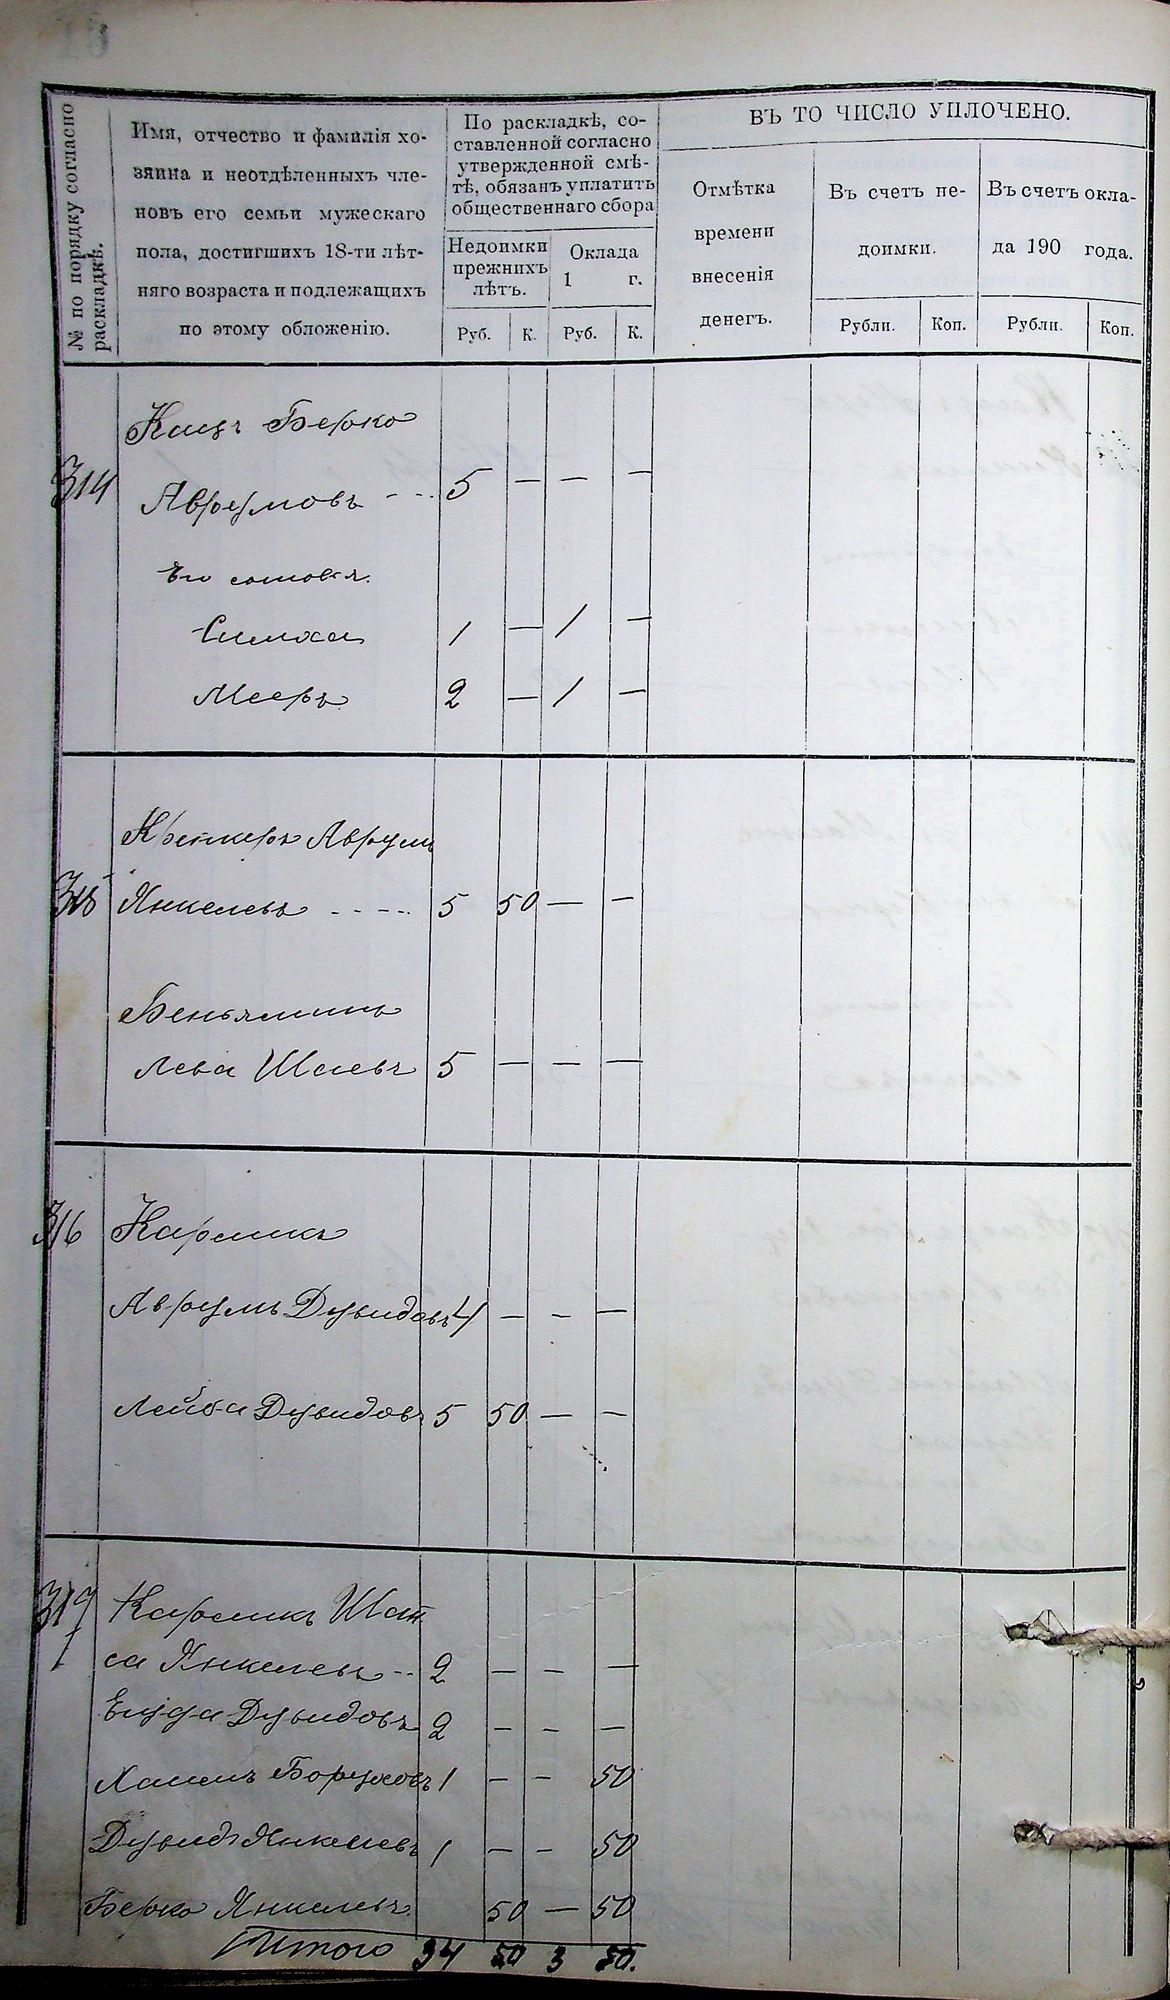 № по порядку согласно
раскладкѣ.
Имя, отчество и фамилія хо-
зяина и неотдѣленныхъ чле-
новъ его семьи мужескаго
пола, достигшихъ 18-ти лѣт-
няго возраста и подлежащихъ
по этому обложенію.
По раскладкѣ, со-
ставленной согласно
утвержденной смѣ-
тѣ, обязанъ уплатить
общественнаго сбора
Недоимки
прежнихъ
лѣтъ.
Оклада
1 г.
Руб. К. Руб. К.
ВЪ ТО ЧИСЛО УПЛОЧЕНО.
Отмѣтка
времени
внесенія
денегъ.
Въ счетъ не-
доимки.
Рубли. Коп.
Въ счетъ окла-
да 190 года.
Рубли. Коп.
Кацъ Берко
314 Аврумовъ - - - 5 — — —
Его сыновья.
Симха 1 — 1 —
Мееръ 2 — 1 —
Аврумъ
315 Янкелевъ - - - - 5 50 — —
Беньяминъ
Лева Шаевъ 5 — — —
316 Карликъ
Аврумъ Дувидовъ 4 — — —
Лейба Дувидовъ 5 50 — —
317 Карликъ
Янкелевъ - - 2 — — —
Дувидовъ 2 — — —
Хаимъ Боруховъ 1 — — 50
Дувидъ Янкелевъ 1 — — 50
Берко Янкелевъ. 50 — 50
Итого 34 50 3 50.